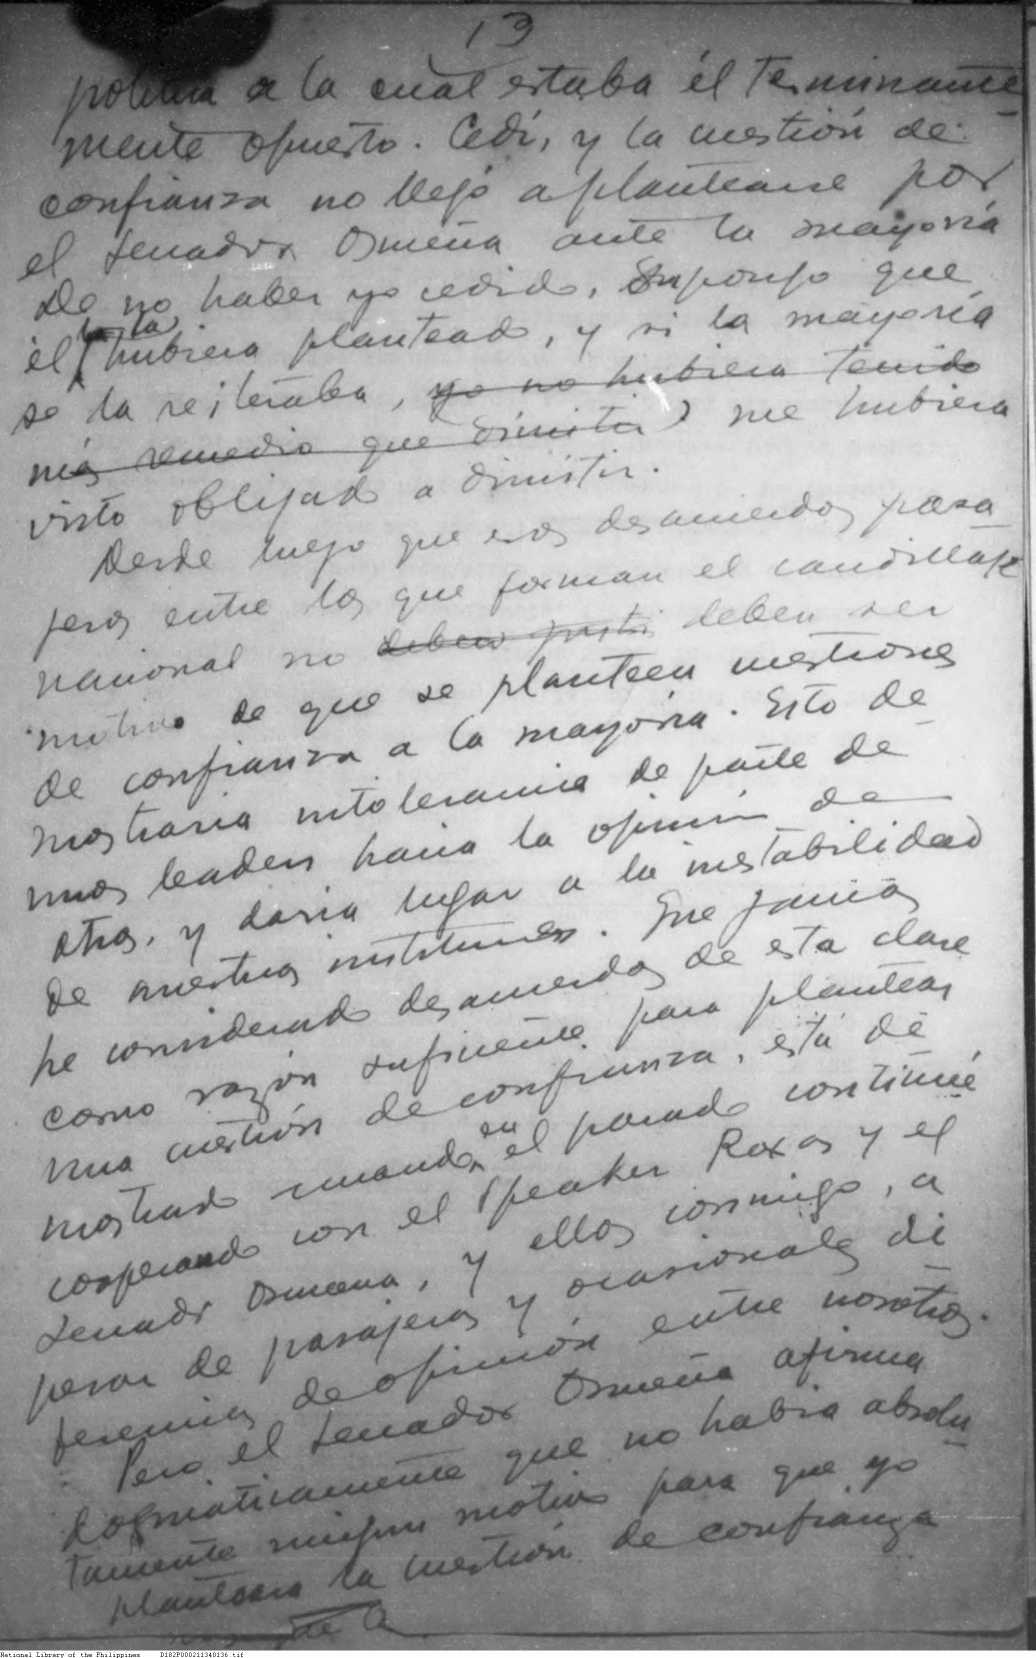 13
politica a la cual estaba él terminante
mente opuesto. Cedí, y la cuestión de
confianza no llegó a plantearse por
el Senador Osmeña ante la mayoría
De no haber yo cedido, supongo que
él la hubiera planteado, y si la mayoría
se la reiteraba, yo no hubiera tenido
más remedio que dimitir, me hubiera
visto obligado a dimitir.
Desde luego que esos desacuerdos pasa
jeros entre los que forman el caudillaje
nacional no deben deben ser
motivo de que se planteen cuestiones
de confianza a la mayoria. Esto de
mostraria intolerancia de parte de
unos leaders hacia la opinión de
otros, y daria lugar a la instabilidad
de nuestras instituciones. Que jamás
he considerado desacuerdos de esta clase
como razón suficiente para plantear
una cuestión de confianza, está de
mostrado cuando en el pasado continué
cooperando con el Speaker Roxas y el
Senador Osmeña, y ellos conmigo, a
pesar de pasajeros y ocasionales di
ferencias de opinión entre nosotros.
Pero el Senador Osmeña afirma
dogmaticamente que no habia absolu
tamente ningun motivo para que yo
planteara la cuestión de confianza
National Library of the Philippines D182P000211340136.tif